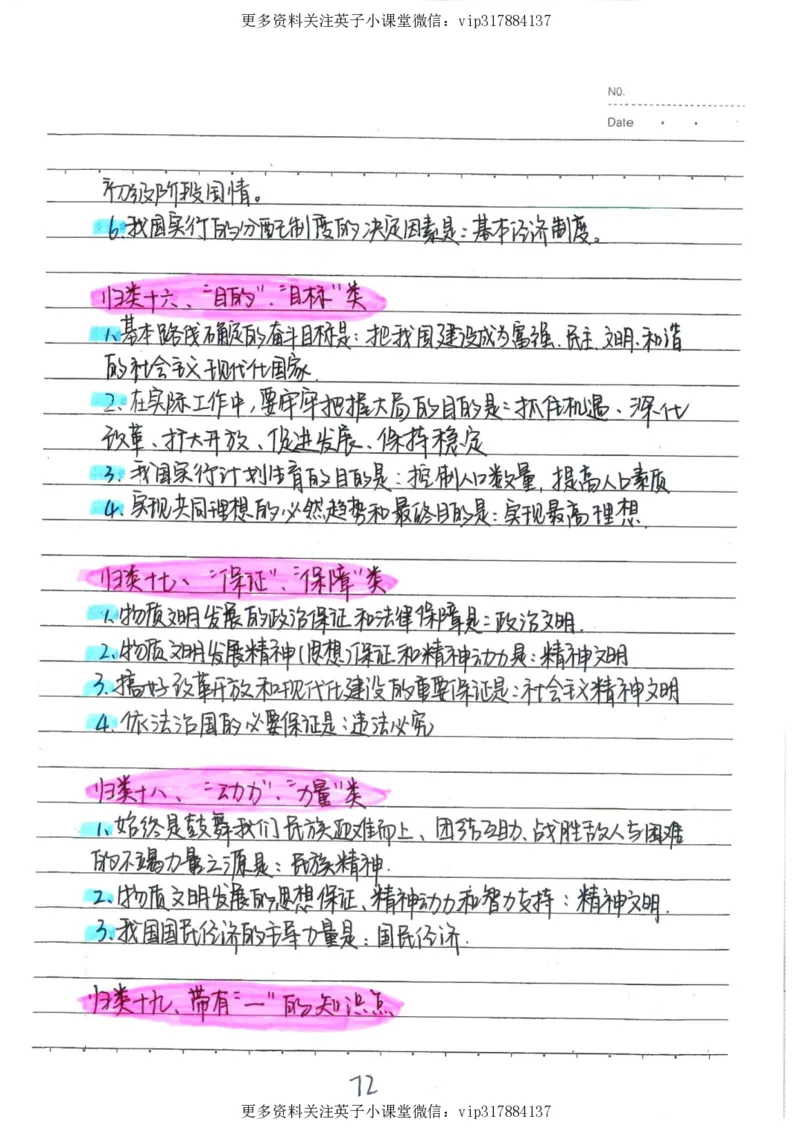 更多资料关注英子小课堂微信：vip317884137
NO.
Date
初级阶段国情。
6.我国实行的分配制度的决定因素是：基本经济制度。
归类十六、"目的"、"目标"类
1.基本路线确定的奋斗目标是：把我国建设成为富强、民主、文明、和谐
的社会主义现代化国家.
2.在实际工作中，要牢牢把握大局的目的是：抓住机遇、深化
改革、扩大开放、促进发展、保持稳定
3.我国实行计划生育的目的是：控制人口数量，提高人口素质
4.实现共同理想的必然趋势和最终目的是：实现最高理想.
归类十七、"保证"、"保障"类
1.物质文明发展的政治保证和法律保障是：政治文明.
2.物质文明发展精神(思想)保证和精神动力是：精神文明
3.搞好改革开放和现代化建设的重要保证是：社会主义精神文明
4.依法治国的必要保证是：违法必究
归类十八、"动力"、"力量"类
1.始终是鼓舞我们民族迎难而上、团结互助、战胜敌人与困难
的不竭力量之源是：民族精神.
2.物质文明发展的思想保证、精神动力和智力支持：精神文明.
3.我国国民经济的主导力量是：国民经济.
归类十九、带有"一"的知识点
72
更多资料关注英子小课堂微信：vip317884137